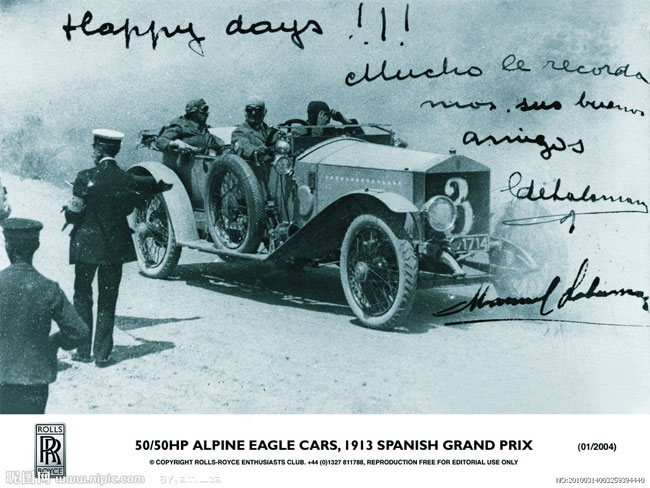 Happy days !!!
Mucho le recorda
mos. sus buenos
amigos
3
1714
ROLLS
RR
ROYCE
50/50HP ALPINE EAGLE CARS, 1913 SPANISH GRAND PRIX
(01/2004)
© COPYRIGHT ROLLS-ROYCE ENTHUSIASTS CLUB. +44 (0)1327 811788, REPRODUCTION FREE FOR EDITORIAL USE ONLY
昵图网 www.nipic.com
BY:
NO:20100314003259394440